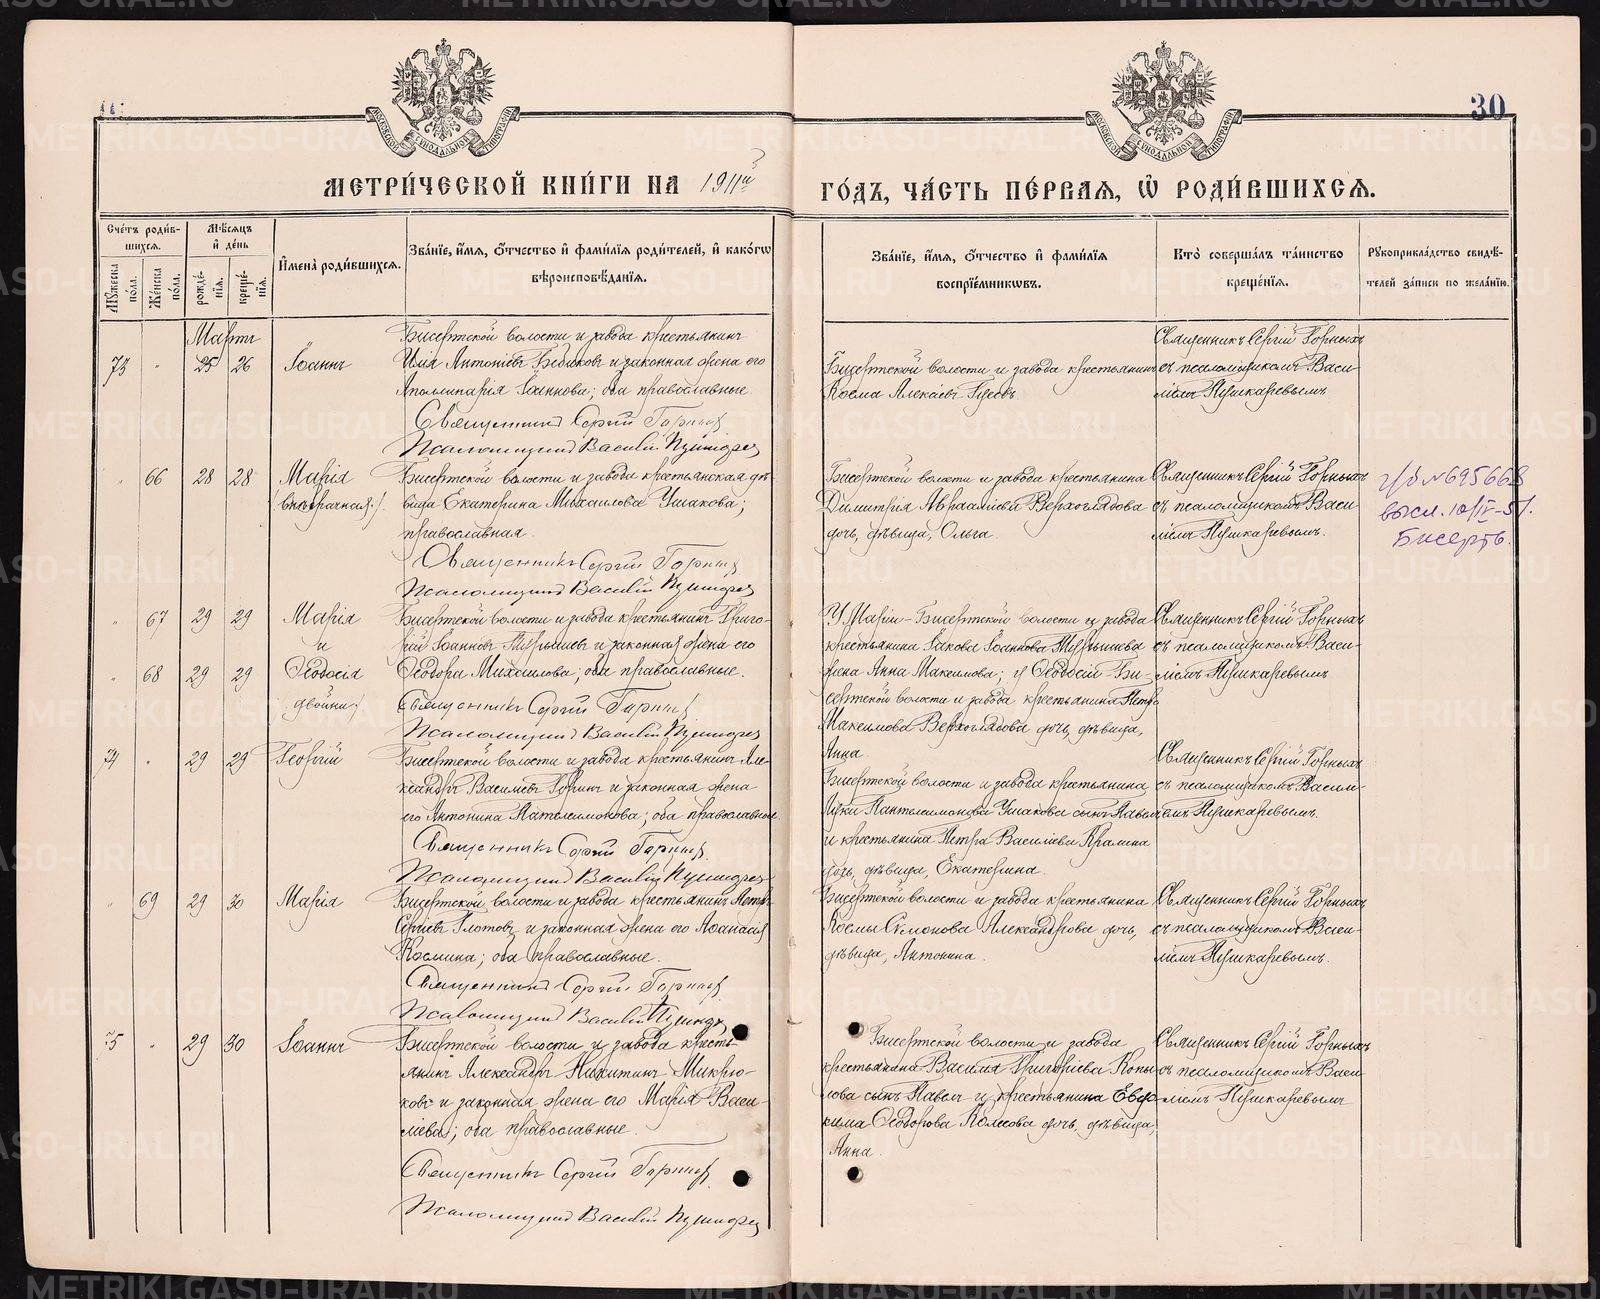 30
МЕТРИ́ЧЕСКОЙ КНИ́ГИ НА 1911й
ГО́ДЪ, ЧА́СТЬ ПЕ́РВАѦ, Ѽ РОДИ́ВШИХСѦ.
Сче́тъ роди́в-
шихсѧ.
Мѣ́сѧцъ
и҆ де́нь
Мꙋ́жеска по́ла.
Же́нска по́ла.
рожде́нїѧ.
креще́нїѧ.
И҆мена̀ роди́вшихсѧ.
Зва́нїе, и҆́мѧ, ѻ҆́тчество и҆ фами́лїѧ роди́телей, и҆ како́гѡ
вѣроисповѣ́данїѧ.
Зва́нїе, и҆́мѧ, ѻ҆́тчество и҆ фами́лїѧ
воспрїе́мникѡвъ.
Кто̀ соверша́лъ та́инство
креще́нїѧ.
Рꙋкоприкла́дство свидѣ́-
телей за́писи по жела́нїю.
Мартъ
73 " 25 26 Іоаннъ
Бисертской волости и завода крестьянинъ
Илія Антоніевъ и законная жена его
Аполлинарія Іоаннова; оба православные
Священникъ Сергій Горныхъ
Псаломщикъ Василій Пушкаревъ
Бисертской волости и завода крестьянинъ
Косма Алексіевъ
Священникъ Сергій Горныхъ
съ псаломщикомъ Васи-
ліемъ Пушкаревымъ
" 66 28 28 Марія
(внѣбрачная)
Бисертской волости и завода крестьянская дѣ-
вица Екатерина Михаилова Ушакова;
православная.
Священникъ Сергій Горныхъ
Псаломщикъ Василій Пушкаревъ
Бисертской волости и завода крестьянина
Димитрія Авраміева Верхоглядова
дочь, дѣвица, Ольга.
Священникъ Сергій Горныхъ
съ псаломщикомъ Васи-
ліемъ Пушкаревымъ.
№695668
высл. 10/IV-57.
Бисерть.
" 67 29 29 Марія
и
" 68 29 29 Ѳеодосія
двойни
Бисертской волости и завода крестьянинъ Григо-
рій Іоанновъ и законная жена его
Ѳеодора Михаилова; оба православные.
Священникъ Сергій Горныхъ
Псаломщикъ Василій Пушкаревъ
У Маріи - Бисертской волости и завода
крестьянина Іакова Іоаннова
жена Анна Максимова; у Ѳеодосіи Би-
сертской волости и завода крестьянина Петра
Максимова Верхоглядова дочь, дѣвица,
Анна
Священникъ Сергій Горныхъ
съ псаломщикомъ Васи-
ліемъ Пушкаревымъ
74 " 29 29 Георгій
Бисертской волости и завода крестьянинъ Але-
ксандръ Василіевъ и законная жена
его Антонина Пателеимонова; оба православные
Священникъ Сергій Горныхъ
Псаломщикъ Василій Пушкаревъ
Бисертской волости и завода крестьянина
Луки Пантелеимонова Ушакова сынъ Павелъ
и крестьянина Петра Василіева
дочь, дѣвица, Екатерина.
Священникъ Сергій Горныхъ
съ псаломщикомъ Васили-
емъ Пушкаревымъ.
" 69 29 30 Марія
Бисертской волости и завода крестьянинъ Петръ
Сергіевъ Глотовъ и законная жена его Аѳанасія
Космина; оба православные.
Священникъ Сергій Горныхъ
Псаломщикъ Василій Пушкаревъ
Бисертской волости и завода крестьянина
Космы Симонова Александрова дочь,
дѣвица, Антонина.
Священникъ Сергій Горныхъ
съ псаломщикомъ Васи-
ліемъ Пушкаревымъ.
75 " 29 30 Іоаннъ
Бисертской волости и завода кресть-
янинъ Александръ Никитинъ Микрю-
ковъ и законная жена его Марія Васи-
лиева; оба православные.
Священникъ Сергій Горныхъ
Псаломщикъ Василій Пушкаревъ
Бисертской волости и завода
крестьянина Василія Григоріева Копы-
лова сынъ Павелъ и крестьянина Евдо-
кима Ѳеодорова дочь, дѣвица,
Анна.
Священникъ Сергій Горныхъ
съ псаломщикомъ Васи-
ліемъ Пушкаревымъ
METRIKI.GASO-URAL.RU